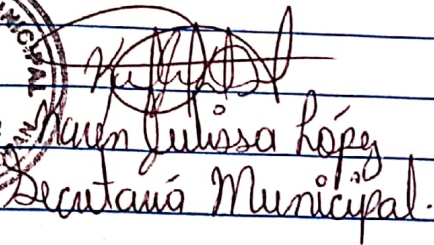 Karen Julissa López
Secretaria Municipal.